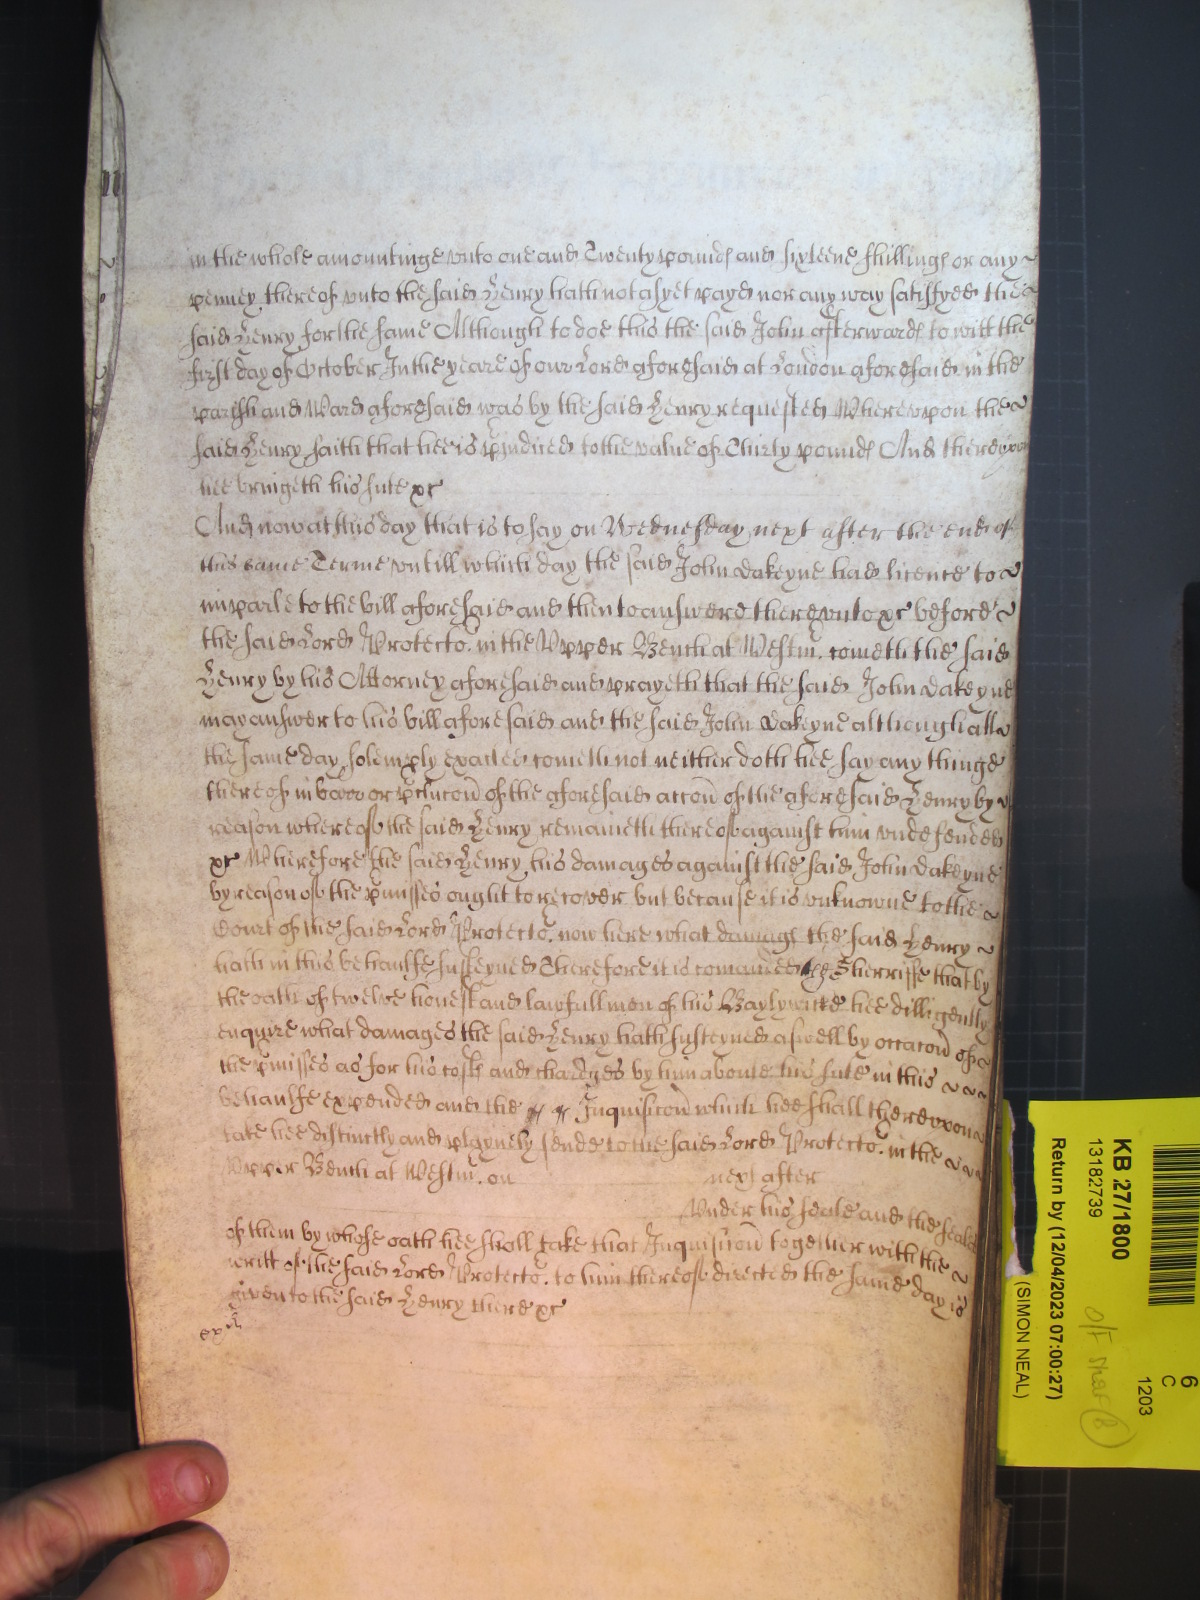 in the whole amountinge vnto one and Twenty pounds and sixteene shillings or any
penney thereof vnto the said Henry hath not as yet payd nor any way satisfyed the
said Henry for the same Although to doe this the said John afterwards to witt the
first day of October In the yeare of our Lord aforesaid at London aforesaid in the
parish and Ward aforesaid was by the said Henry requested Wherevpon the
said Henry saith that hee is piudiced to the value of Thirty pounds And therevpon
hee bringeth his sute &c
And now at this day that is to say on Wednesday next after the end of
this same Terme vntill which day the said John Dakeyne had licence to
imparle to the bill aforesaid and then to answere therevnto &c before
the said Lord Protector in the Vpper Bench at Westm. cometh the said
Henry by his Attorney aforesaid and prayeth that the said John Dakeyne
may answer to his bill aforesaid and the said John Dakeyne although all
the same day solemply exacted cometh not neither doth hee say any thinge
thereof in barr or pclucon of the aforesaid accon of the aforesaid Henry by
reason whereof the said Henry remaineth thereof against him vndefended
&c Wherefore the said Henry his damages against the said John Dakeyne
by reason of the pmisses ought to recover but because it is vnknowne to the
Court of the said Lord Protector now here what damags the said Henry
hath in this behaulfe susteyned Therefore it is comanded the Sherriffe that by
the oath of twelve honest and lawfull men of his Baylywicke hee dilligently
enquire what damages the said Henry hath susteyned aswell by occacon of
the pmisses as for his costs and chardges by him aboute his sute in this
behaulfe expended and the Inquisicon which hee shall therevpon
take hee distinctly and playnely send to the said Lord Protector in the
Vpper Bench at Westm. on next after
Vnder his seale and the seales
of them by whose oath hee shall take that Inquisicon together with the
writt of the said Lord Protector to him thereof directed the same day is
given to the said Henry there &c
KB 27/1800
13182739
Return by (12/04/2023 07:00:27)
(SIMON NEAL)
6
C
1203